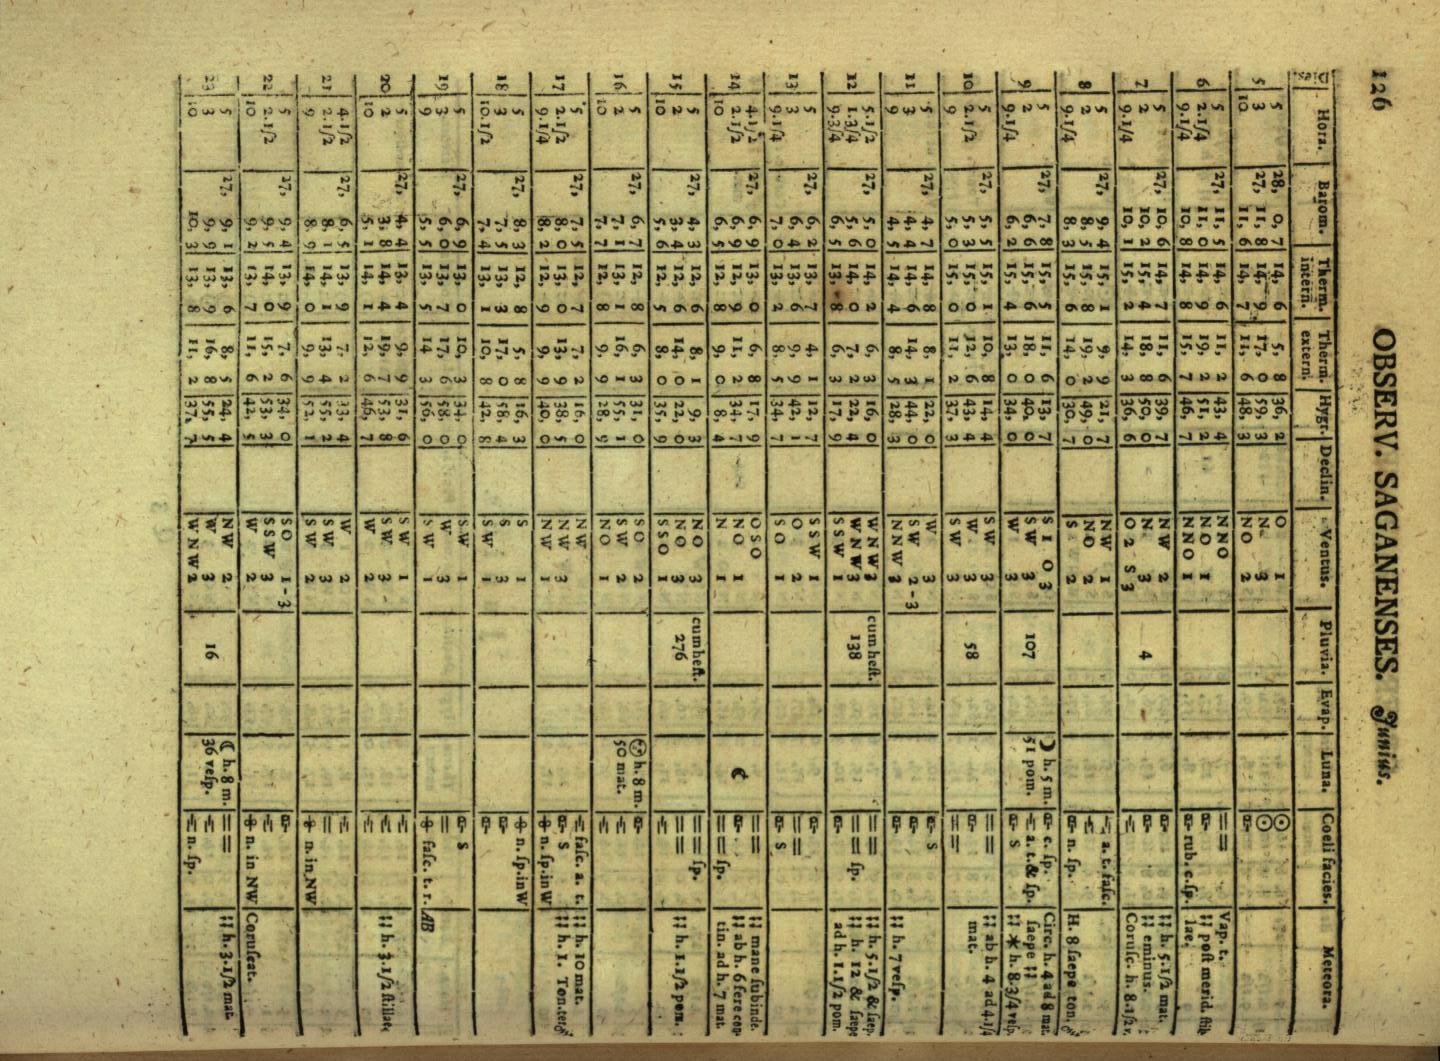 126 OBSERV. SAGANENSES. Junius.
Hora. Barom. Therm. intern. Therm. extern. Hygr. Declin. Ventus. Pluvia. Evap. Luna. Coeli facies. Meteora.
5 5 28, 0, 7 14, 6 5, 8 36, 2 O 1 ☉
3 27, 11, 8 14, 9 17, 0 59, 3 N 3 ☉
10 11, 6 14, 7 11, 6 48, 3 NO 2
6 5 27, 11, 5 14, 6 11, 2 43, 4 NNO == Vap. t.
2.1/4 11, 0 14, 9 19, 2 51, 2 NO 1 == ¦¦ post merid. stil
9.1/4 10, 8 14, 8 15, 7 46, 7 NNO 1 rub. c. sp. lae.
7 5 27, 10, 6 14, 7 11, 6 39, 7 NW 2 ¦¦ h. 5.1/2 mat.
2 10, 2 15, 4 18, 8 50, 0 N 3 4 ¦¦ eminus.
9.1/4 10, 1 15, 2 14, 3 36, 6 O 2 S 3 Corusc. h. 8.1/2 v.
8 5 27, 9, 4 15, 1 9, 9 21, 7 NW 1 a. t. fasc.
2 8, 5 15, 8 19, 2 49, 0 NO 2
9.1/4 8, 3 15, 6 14, 0 30, 7 S 2 n. sp. H. 8 saepe ton.
9 5 27, 7, 8 15, 5 11, 6 13, 7 S 1 O 3 ☽ h. 5 m. c. sp. Circ. h. 4 ad 8 mat.
2 6, 5 15, 6 18, 0 40, 0 SW 3 107 51 pom. a. t. & sp. saepe ¦¦
9.1/4 6, 2 15, 4 13, 0 34, 0 W 3 S ¦¦ * h. 8.3/4 vesp.
10 5 27, 5, 5 15, 1 10, 8 14, 4 SW 3 == ¦¦ ab h. 4 ad 4.1/4
2.1/2 5, 3 15, 0 12, 6 43, 4 W 3 58 == mat.
9 5, 0 15, 0 11, 2 37, 3 SW 3 ==
11 5 27, 4, 7 14, 8 8, 1 22, 0 W 3 S
3 4, 4 14, 6 14, 5 44, 0 SW 2-3
9 4, 5 14, 4 8, 3 28, 3 NNW 3 ¦¦ h. 7 vesp.
12 5.1/2 27, 5, 0 14, 2 6, 3 16, 0 WNW 3 cum hest. == ¦¦ h. 5.1/2 & saep.
1.3/4 5, 6 14, 0 7, 2 22, 4 WNW 3 138 == sp. ¦¦ h. 12 & saepe
9.3/4 6, 5 13, 8 6, 3 17, 9 SSW 1 ad h. 1.1/2 pom.
13 5 27, 6, 2 13, 7 4, 1 12, 7 SSW 1
3 6, 4 13, 6 9, 9 42, 1 O 2 ==
9.1/4 7, 0 13, 2 8, 5 34, 7 SO 1 S
14 4.1/2 27, 6, 9 13, 0 6, 8 17, 9 OSO == ¦¦ mane subinde.
2.1/2 6, 9 12, 9 11, 2 34, 7 NO 1 ☾ == ¦¦ ab h. 6 fere con
10 6, 5 12, 8 9, 0 8, 4 N 1 == sp. tin. ad h. 7 mat.
15 5 27, 4, 3 12, 6 8, 1 9, 3 NO 3 cum hest. == sp.
2 3, 4 12, 6 14, 0 22, 0 NO 3 276 == ¦¦ h. 1.1/2 pom.
10 5, 6 12, 5 8, 0 35, 9 SSO 1
16 5 27, 6, 7 12, 6 6, 3 31, 0 SO 2 h. 8 m.
2 7, 1 13, 1 16, 1 55, 1 SW 2 50 mat.
10 7, 7 12, 8 9, 9 28, 9 NO 1
17 5 27, 8, 5 12, 6 7, 2 16, 0 NW fasc. a. t. ¦¦ h. 10 mat.
2.1/2 8, 0 13, 0 13, 9 38, 5 NW 3 S ¦¦ h. 1. Ton.
9.1/4 8, 2 12, 9 9, 9 40, 0 NW 1 n. sp. in W
18 5 27, 8, 3 12, 8 5, 8 16, 3 S 1 n. sp. in W
3 7, 5 13, 3 17, 0 58, 4 S 3
10.1/2 7, 4 13, 1 10, 8 42, 8 SW 1
19 5 27, 6, 9 13, 0 10, 3 34, 0 SW 1 S
3 6, 0 13, 7 17, 6 58, 0 W 3
9 5, 5 13, 5 14 3 56, 0 SW 1 fasc. t. r. AB
20 5 27, 4, 4 13, 4 9, 9 31, 6 SW 1
2 3, 8 14, 4 19, 7 53, 8 SW 3 ¦¦ h. 3.1/2 stillae.
10 5, 1 14, 1 12, 6 46, 7 W 2
21 4.1/2 27, 6, 5 13, 9 7, 2 33, 4 W 2
2.1/2 8, 1 14, 1 13, 4 55, 2 SW 3 ==
9 8, 9 14, 0 9, 9 52, 1 SW 2 n. in NW
22 5 27, 9, 4 13, 9 7, 6 34, 0 SO 1-3
2.1/2 9, 5 14, 0 15, 2 53, 3 SSW 3
10 9, 2 13, 7 11, 6 42, 5 W 2 n. in NW Coruscat.
23 5 27, 9, 1 13, 6 8, 5 24, 4 NW 2 ☾ h. 8 m. == ¦¦ h. 3.1/2 mat
3 9, 9 13, 9 16, 8 55, 5 W 3 16 36 vesp.
10 10, 3 13, 8 11, 2 37, 7 WNW 2 n. sp.